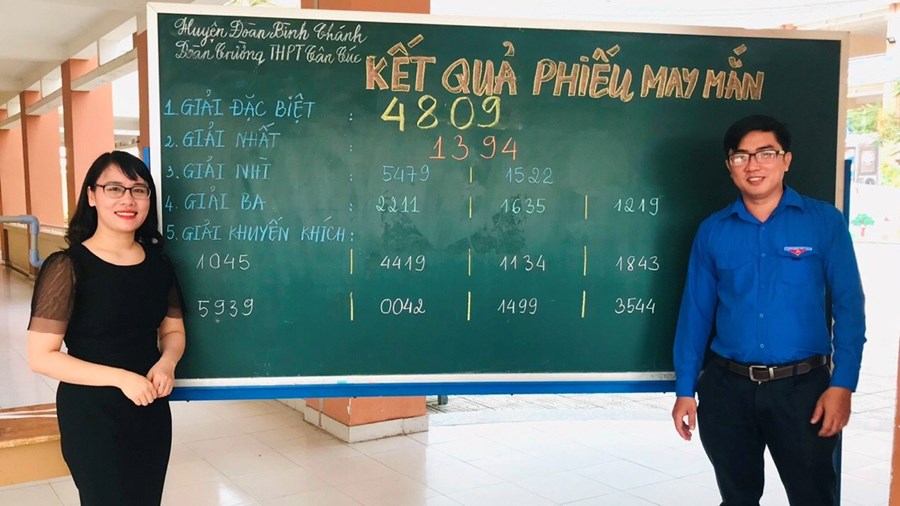 Huyện Đoàn Bình Chánh
Đoàn Trường THPT Tân Túc
KẾT QUẢ PHIẾU MAY MẮN
1. GIẢI ĐẶC BIỆT : 4809
2. GIẢI NHẤT : 1394
3. GIẢI NHÌ : 5479 | 1522
4. GIẢI BA : 2211 | 1635 | 1219
5. GIẢI KHUYẾN KHÍCH :
1045 | 4419 | 1134 | 1843
5939 | 0042 | 1499 | 3544